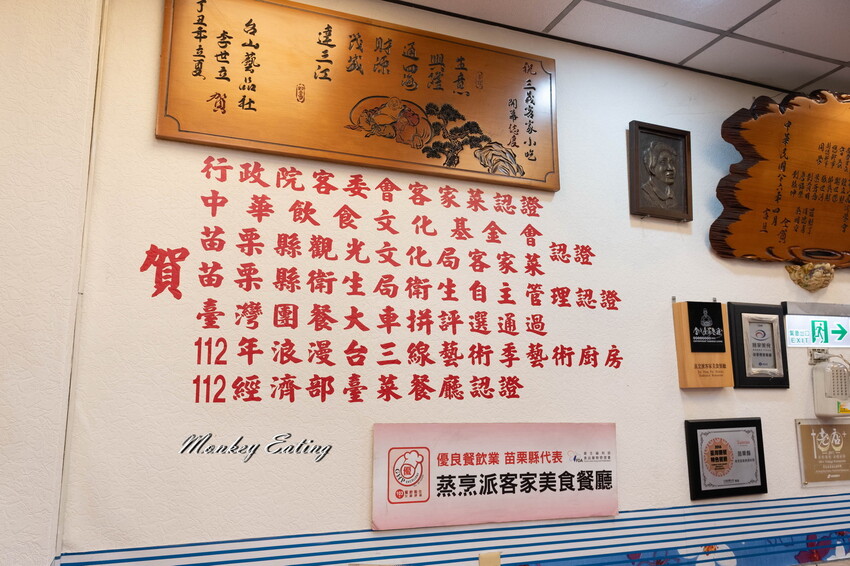 祝 三茂客家小吃 開幕誌慶
生意
興隆
通四海
財源
茂盛
達三江
台山藝品社
李世立 賀
丁丑年立夏
賀
行政院客委會客家菜認證
中華飲食文化基金會
苗栗縣觀光文化局客家菜認證
苗栗縣衛生局衛生自主管理認證
臺灣團餐大車拼評選通過
112年浪漫台三線藝術季藝術廚房
112經濟部臺菜餐廳認證
Monkey Eating
優良餐飲業 苗栗縣代表
蒸烹派客家美食餐廳
優
GTP
中華民國
EXIT
老店